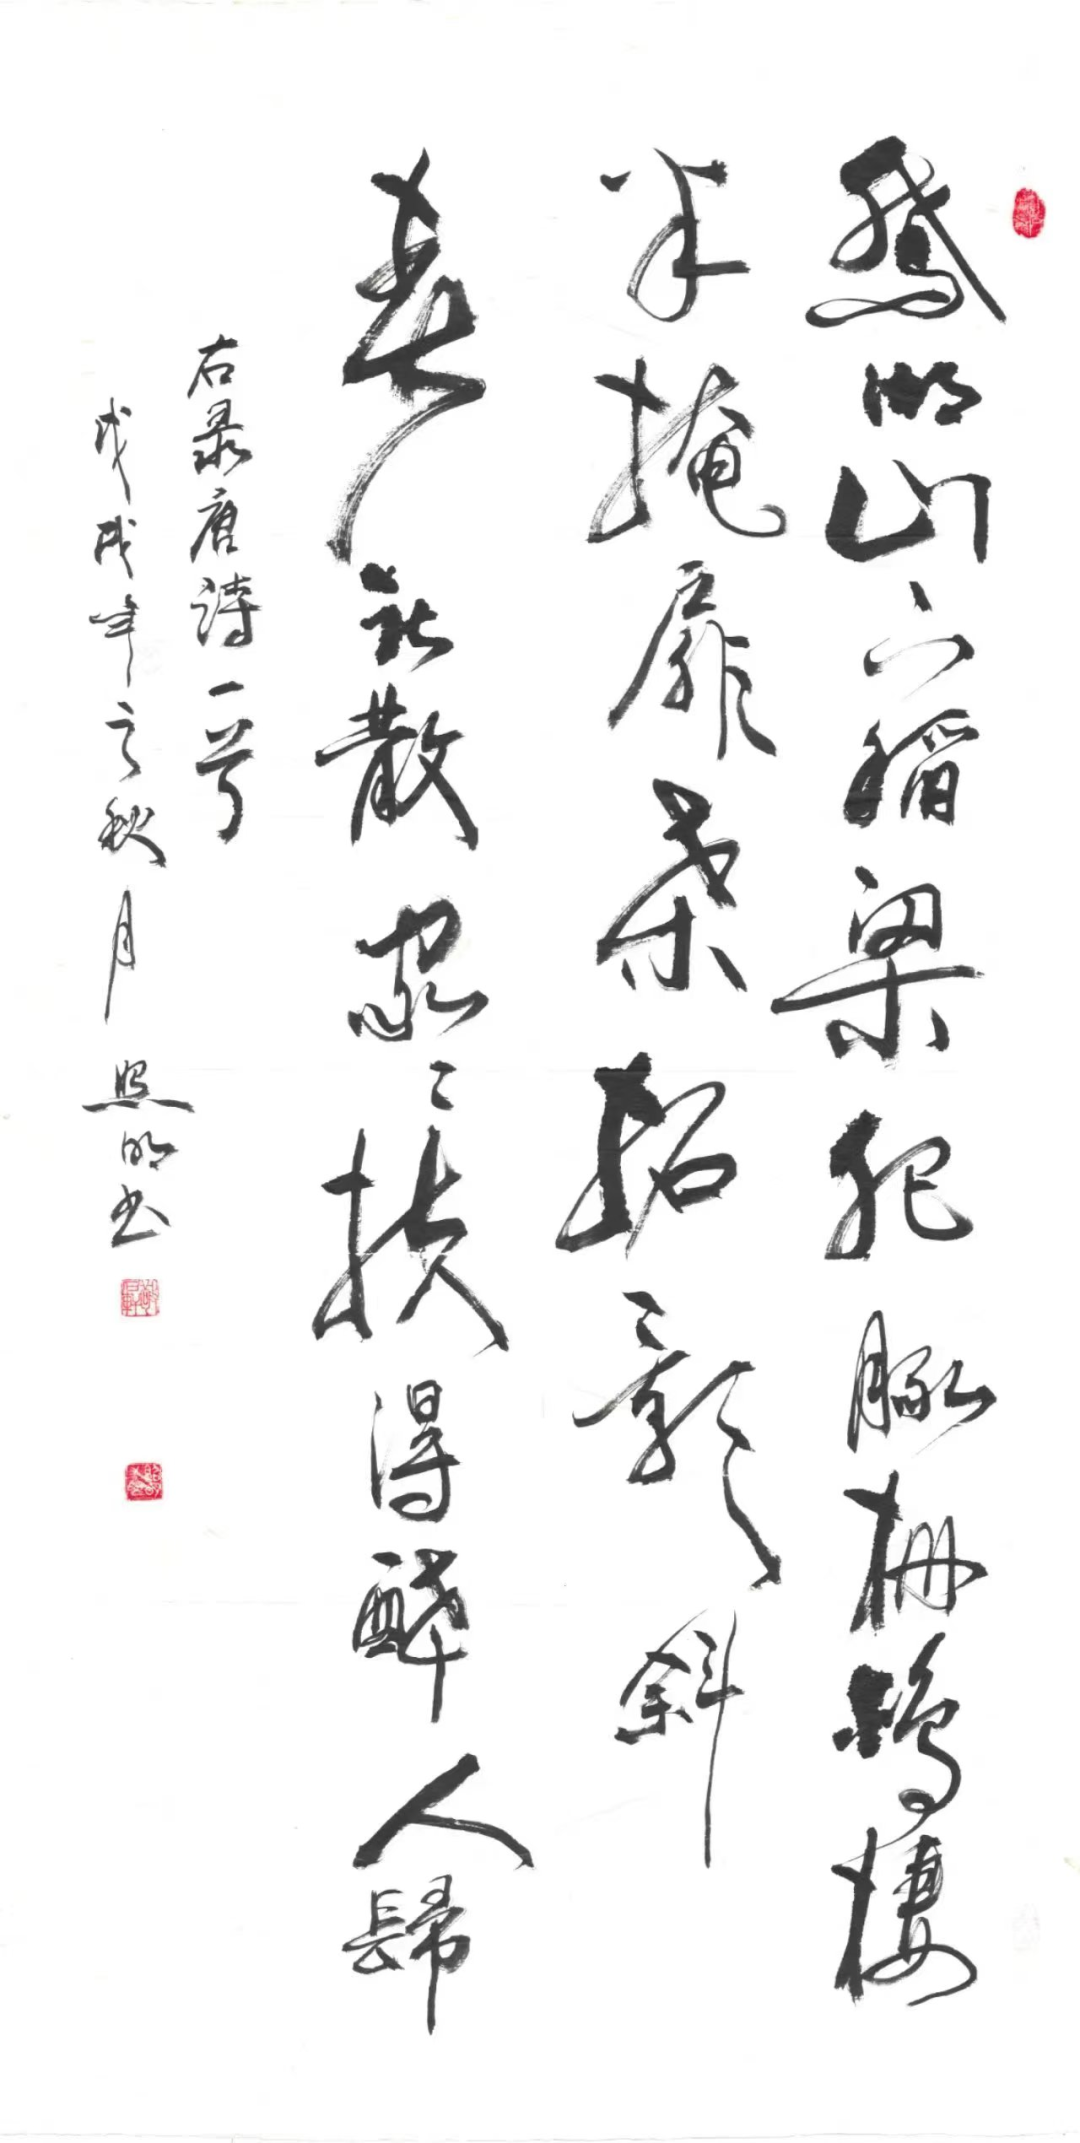 鵞湖山下稻粱肥豚栅鷄棲
半掩扉桑柘影斜
春社散家〻扶得醉人歸
右录唐詩一首
戊戌年之秋月照明书